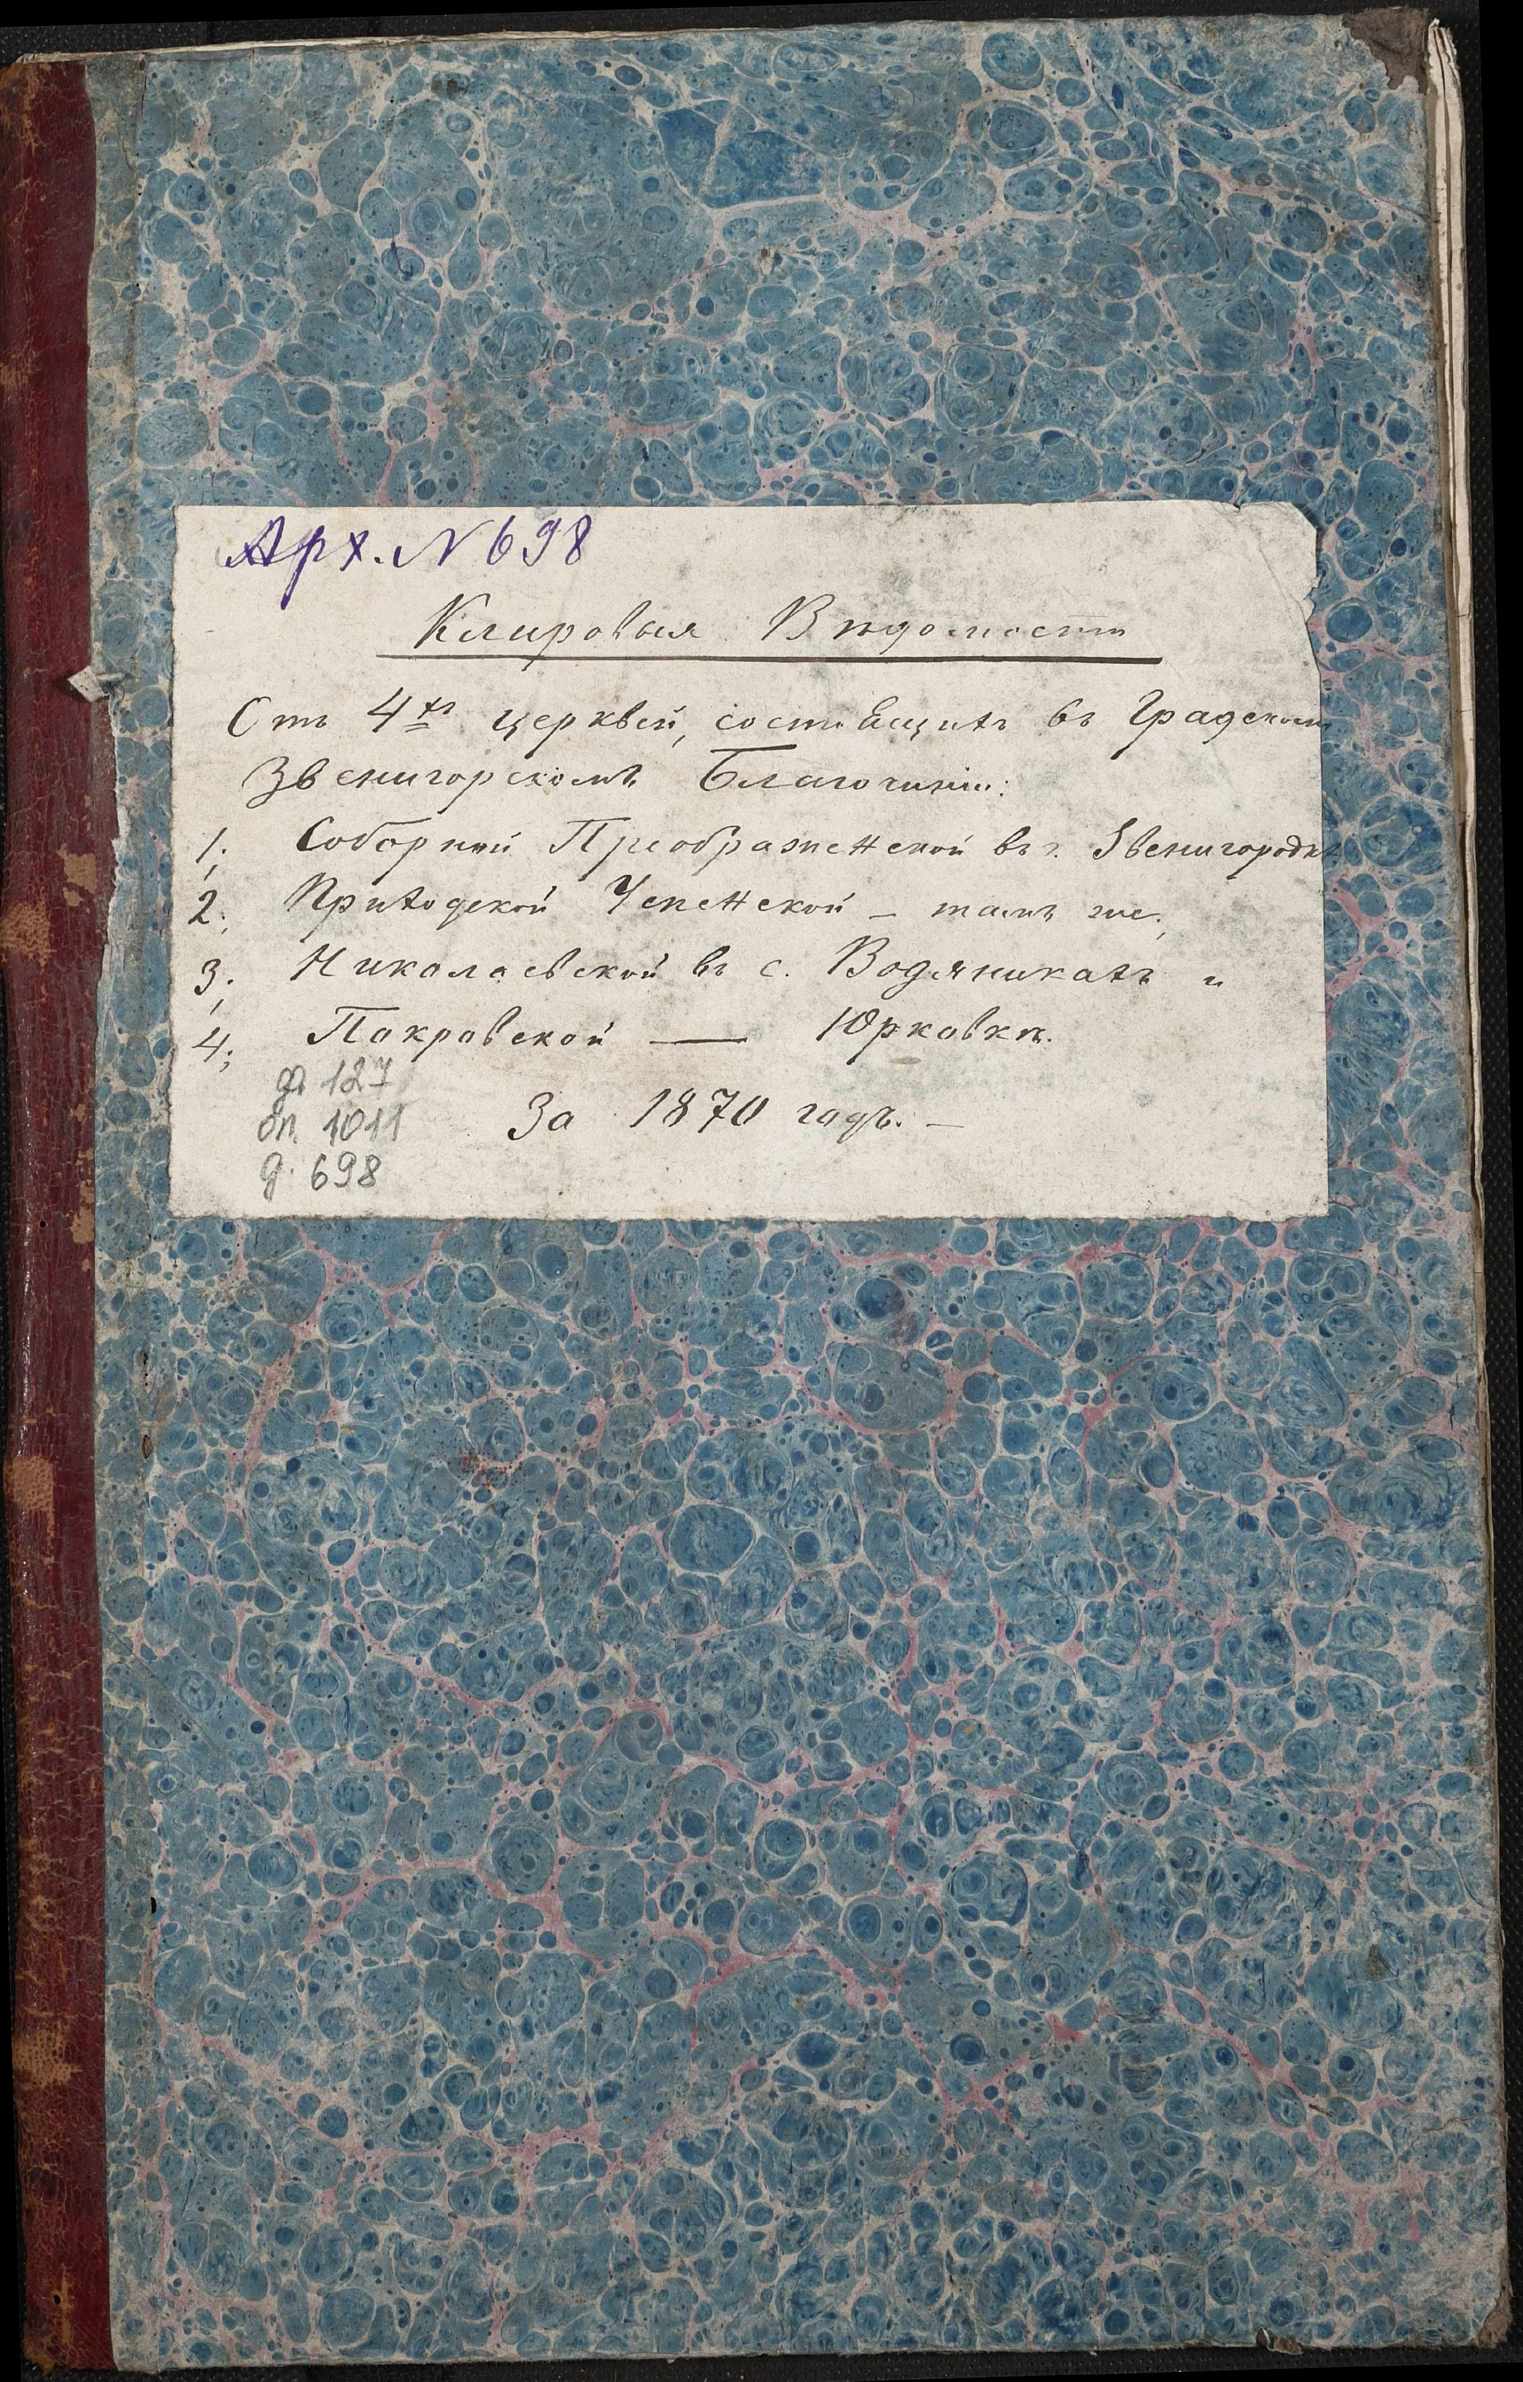 Арх. N 698
Клировыя Вѣдомости
Отъ 4хъ церквей, состоящихъ въ Градскомъ
Звенигорскомъ Благочиніи:
1; Соборной Преображенской въ г. Звенигородкѣ
2; Приходской Успенской – тамъ же;
3; Николаевской въ с. Водяникахъ и
4; Покровской — Юрковкѣ.
ф 127
За 1870 годъ. –
оп. 1011
д. 698